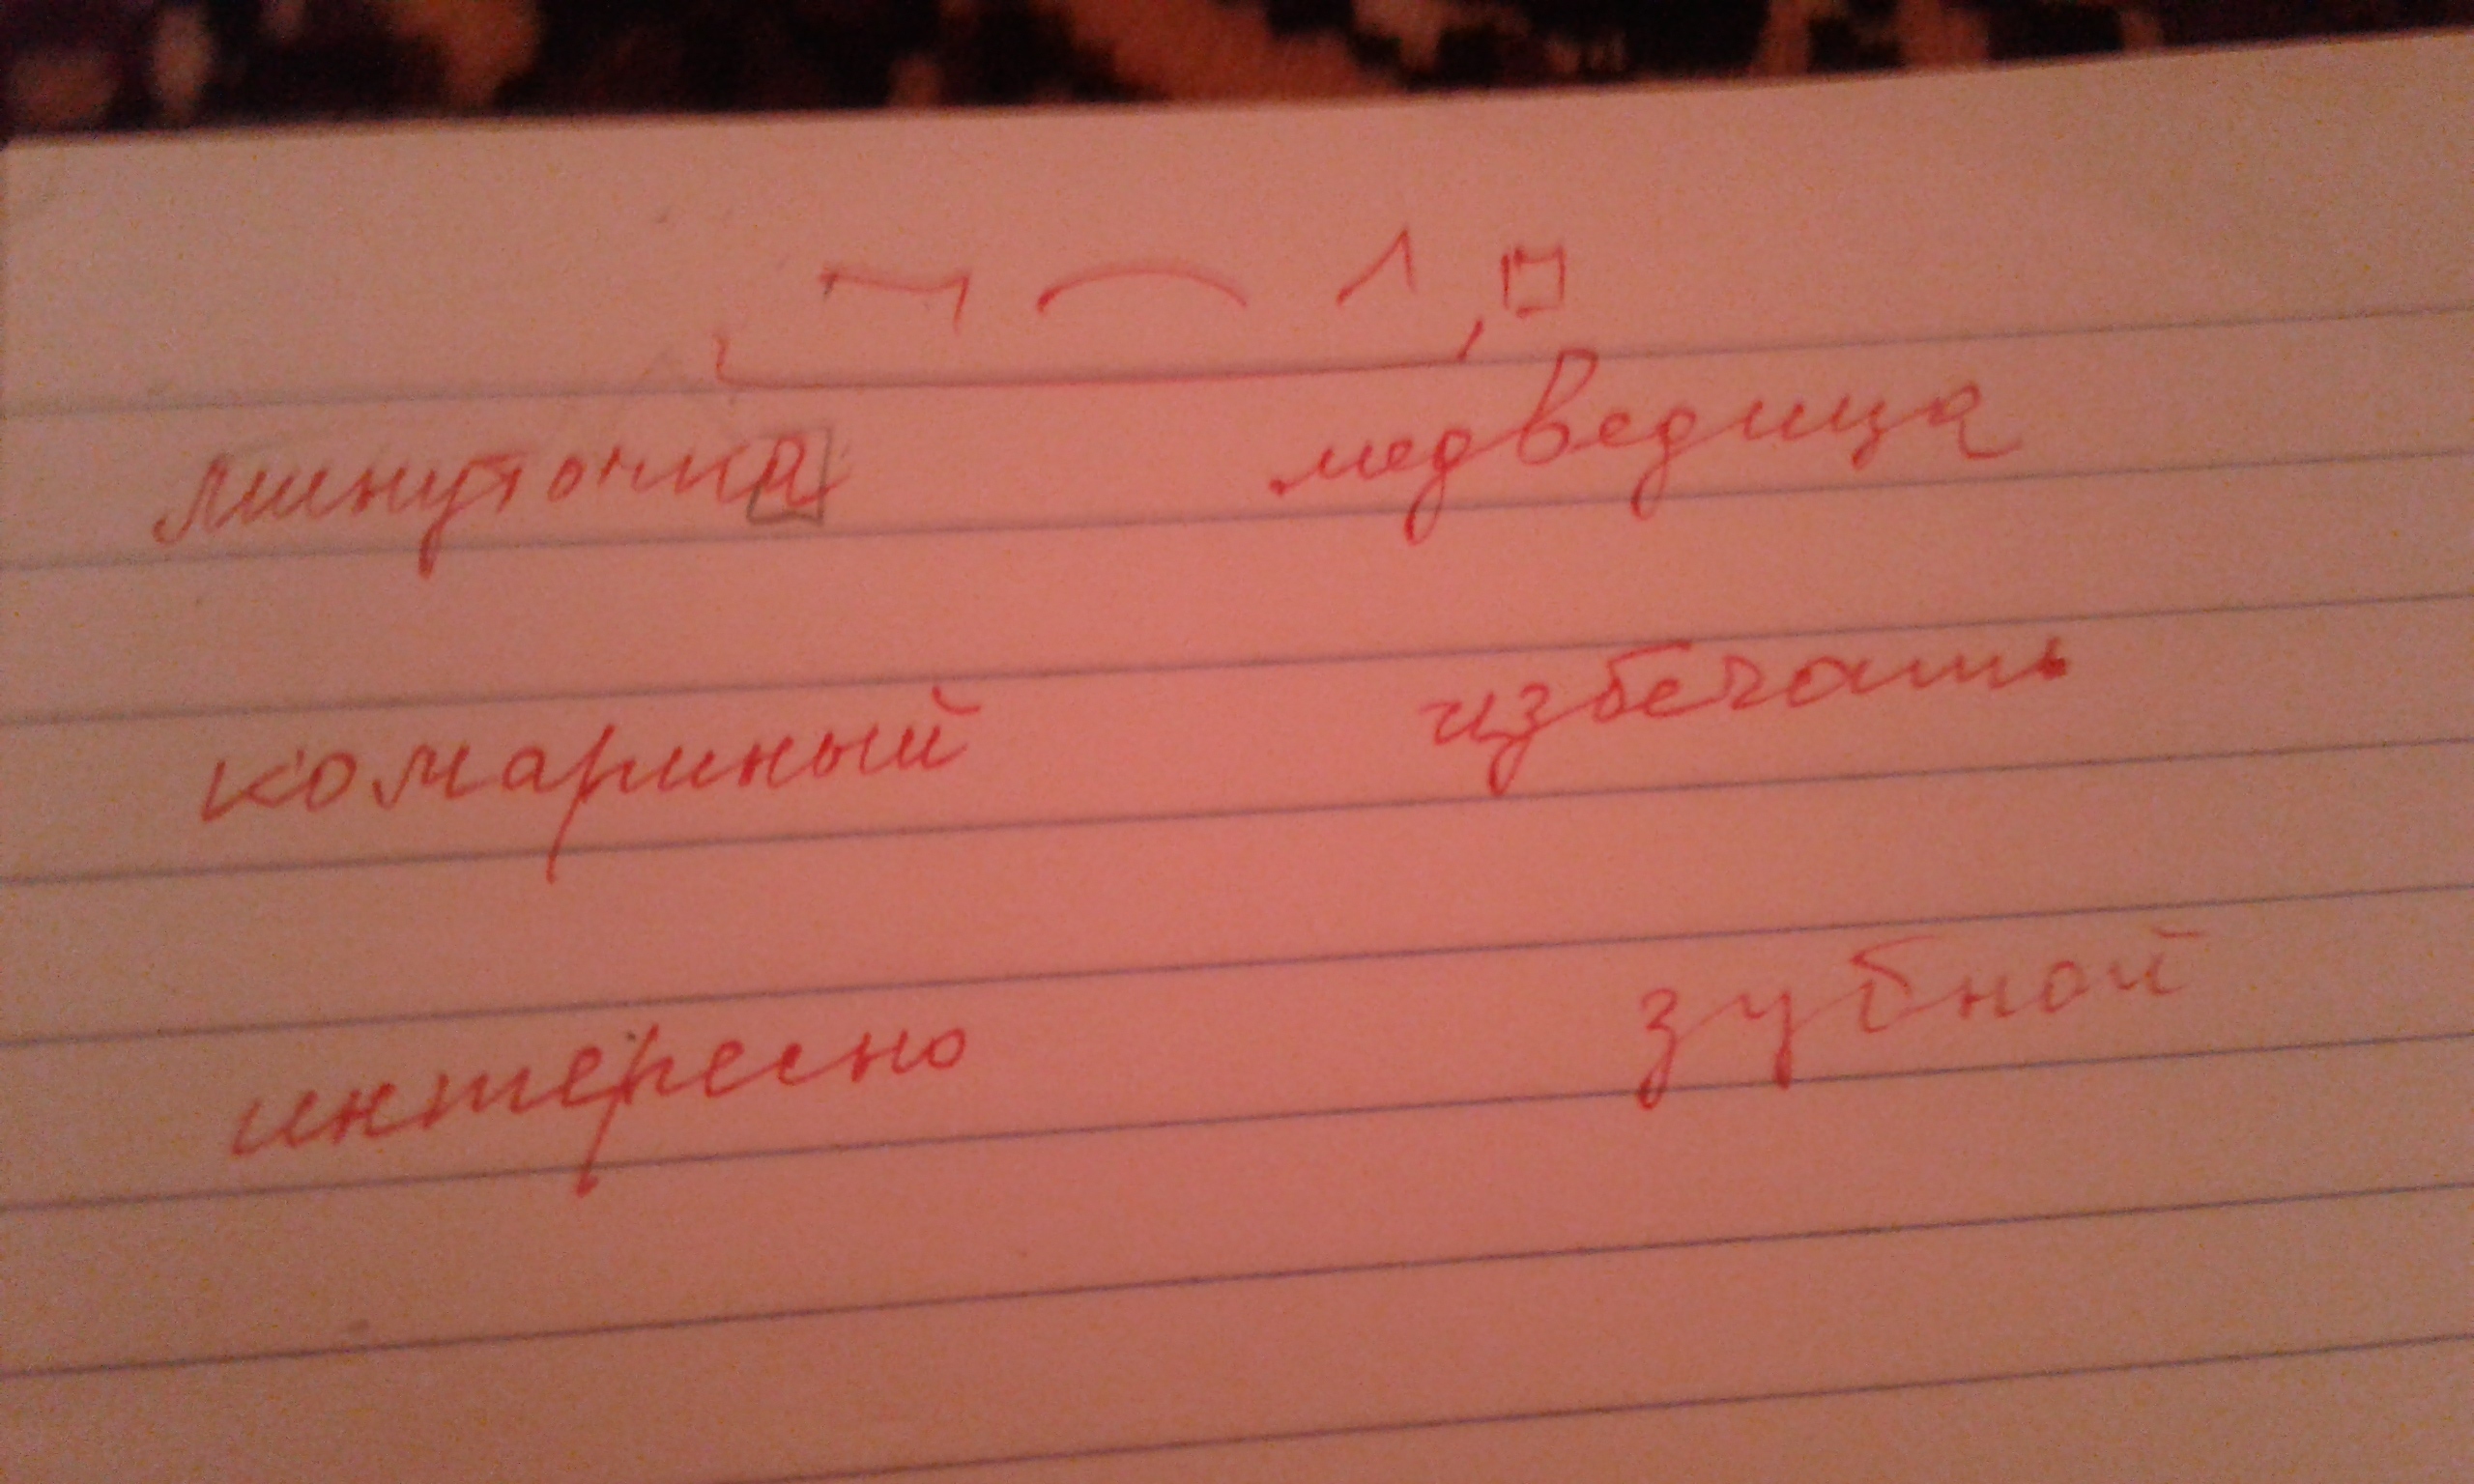 минуточка медведица
комариный избегать
интересно зубной